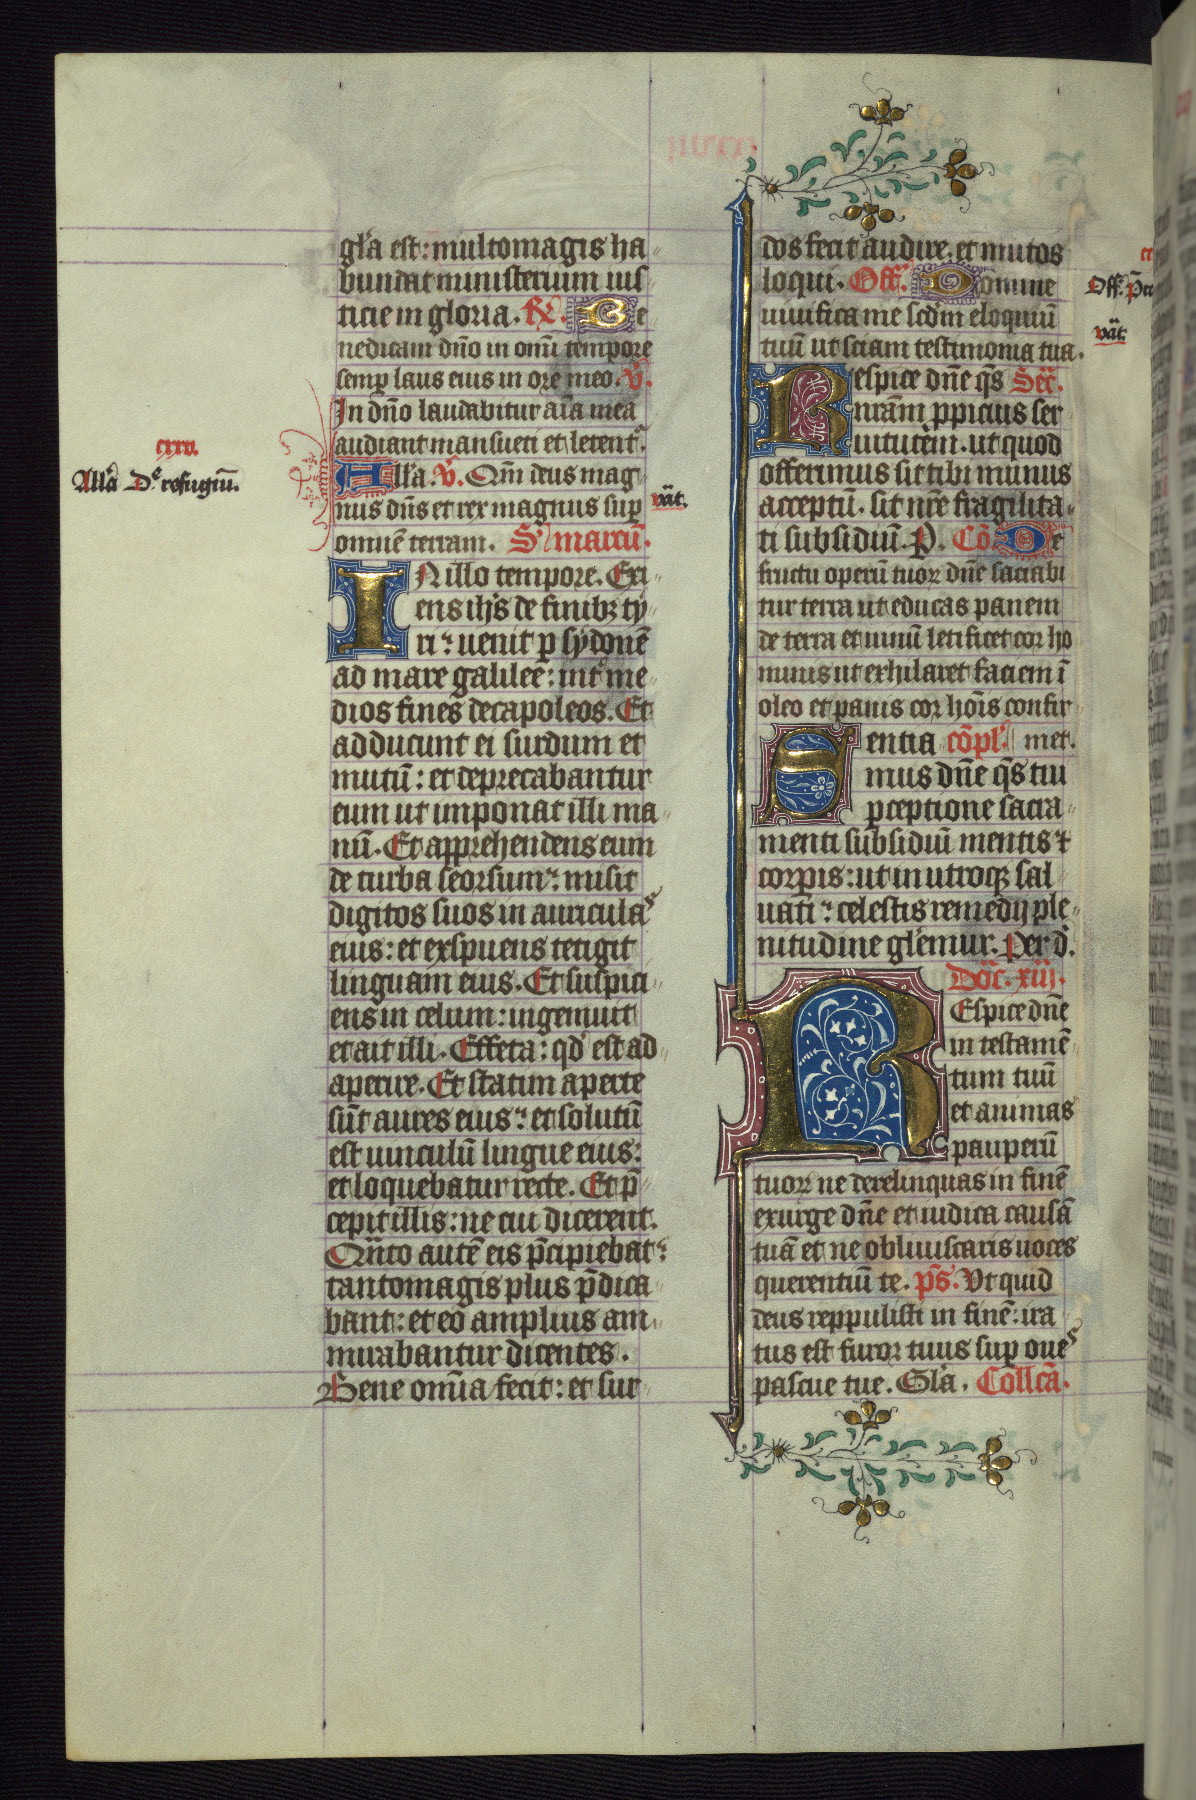 gl'a est: multomagis ha
bundat ministerium ius
ticie in gloria. R̃. Be
nedicam dño in omi tempore
semp laus eius in ore meo. Ṽ.
In dño laudabitur aīa mea
audiant mansueti et letent'.
Alla. Ṽ. Qm̄ deus mag
nus dñs et rex magnus sup
omnē terram. S' marcū.
IN illo tempore. Exi
ens ih's de finibꝫ ty
ri: uenit p sydonē
ad mare galilee: int' me
dios fines decapoleos. Et
adducunt ei surdum et
mutū: et deprecabantur
eum ut imponat illi ma
nū. Et apprehendens eum
de turba seorsum: misit
digitos suos in auriculas
eius: et exspuens tetigit
linguam eius. Et suspici
ens in celum: ingemuit
et ait illi. Effeta: qd' est ad
aperire. Et statim aperte
sūt aures eius: et solutū
est uinculū lingue eius:
et loquebatur recte. Et p̄
cepit illis: ne cui dicerent.
Qn̄to autē eis p̄cipiebat:
tantomagis plus p̄dica
bant: et eo amplius am
mirabantur dicentes.
Bene om̄ia fecit: et sur
cxxv.
All'a D's refugiū.
vāt.
xxvii.
dos fecit audire. et mutos
loqui. Off'. Domine
uiuifica me scdm eloquiū
tuū ut sciam testimonia tua.
Respice dñe q̄s Sec̄.
nr̄am ppicius ser
uitutem. ut quod
offerimus sit tibi munus
acceptū. sit nr̄e fragilita
ti subsidiū. P. Cō. De
fructu operū tuoꝝ dñe saciabi
tur terra ut educas panem
de terra et uinū letificet cor ho
minis ut exhilaret faciem ī
oleo et panis cor hoīs confir
Sentia cōpl'. met.
mus dñe q̄s tui
pceptione sacra
menti subsidiū mentis ⁊
corpis: ut in utroqꝫ sal
uati: celestis remedij ple
nitudine gl'emur. Per d'.
Dōc. xiij.
REspice dñe
in testamē
tum tuū
et animas
pauperū
tuoꝝ ne derelinquas in finē
exurge dñe et iudica causā
tuā et ne obliuiscaris uoces
querentiū te. p̄s. Vt quid
deus reppulisti in finē: ira
tus est furor tuus sup oues
pascue tue. Gl'a. Coll'cā.
Off. P̄ca
vāt.